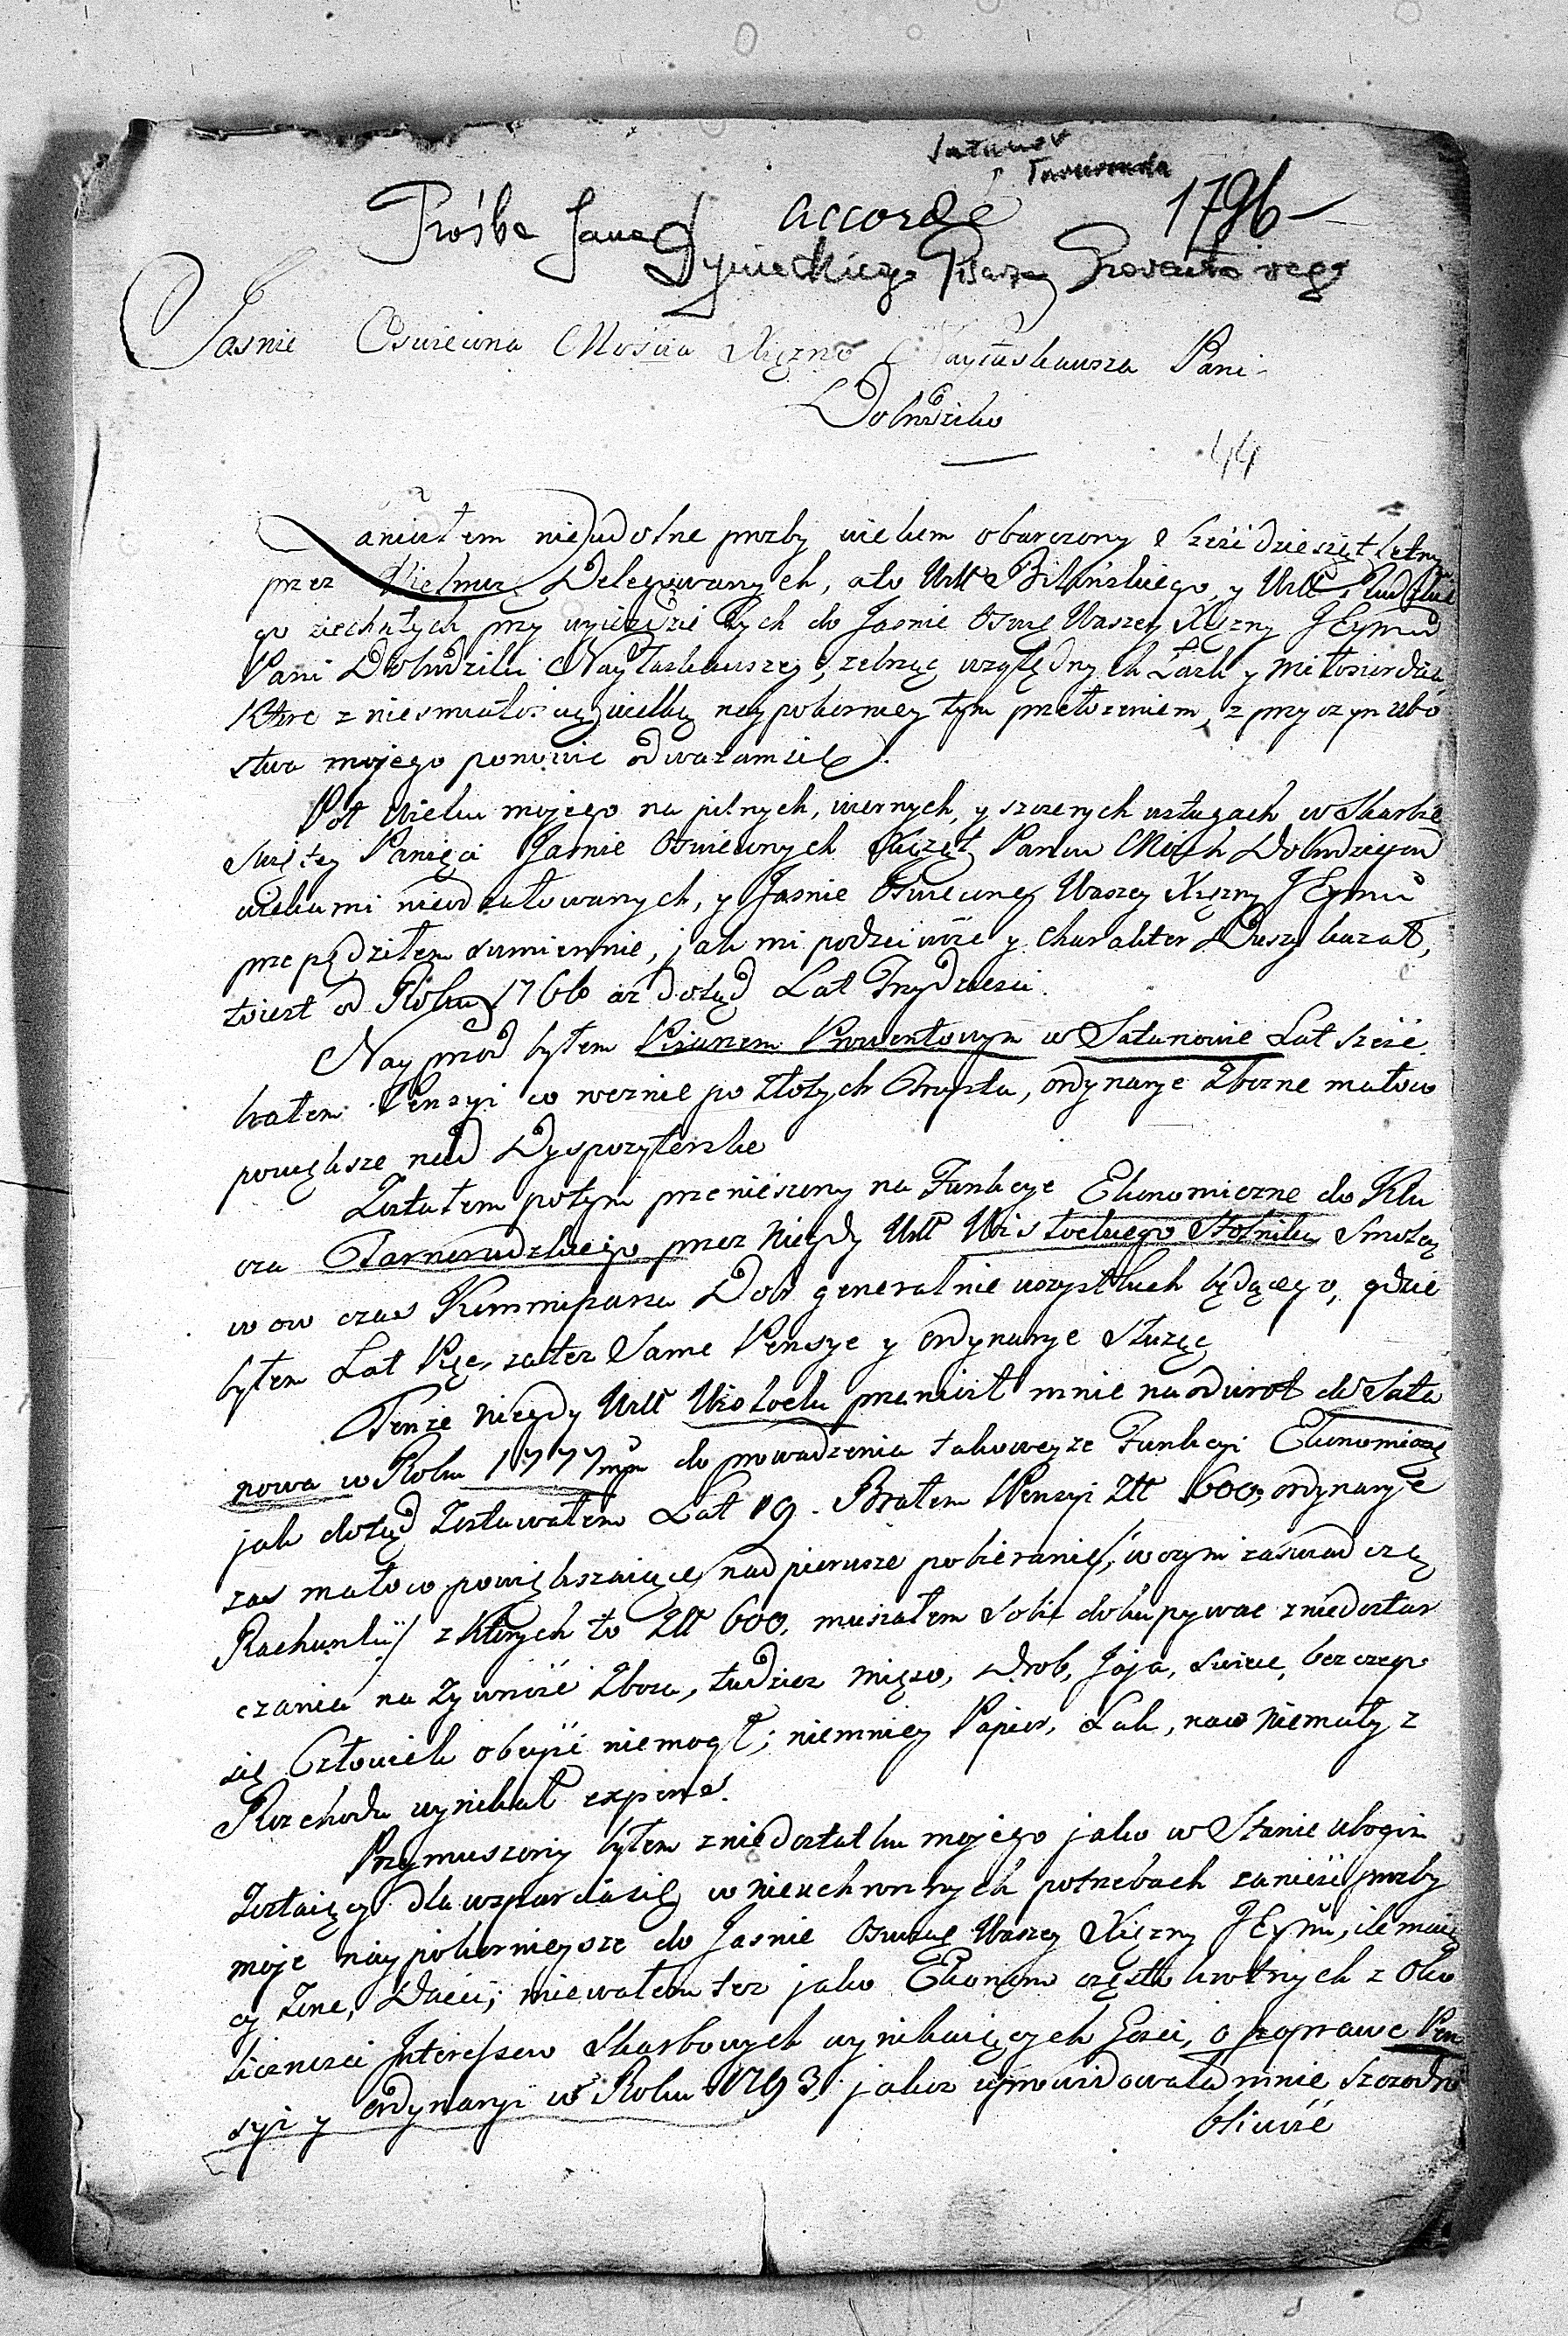 Satanow
Tarnoruda
accordé 1796
Prośba Jana Dynieckiego Pisarza Prowentowego
Jasnie Oswiecona Mościa Xięzno Nayłaskawsza Pani
Dobrodziko
44
Zaniosłem niedudolne prozby wiekem obarczony sześćdziesiąt letny
przez Wielmoż. Delegowanych, ato Urll Bilińskiego, y Urll
go ziechałych przy wyiezdzie tych do Jasnie Oswię Waszey Xięzny JEymć
Pani Dobrodziki Nayłaskawszey, zebrząc względnych Łask y miłosierdzia,
Ktore z niesmiałością wielką naypokorniey tym przełozeniem, z przyczyn ubo
stwa mojego ponowic odwazam się.
Pół Wieku mojego na pilnych, wiernych, y szczerych usługach w Skarbie
Swiętey Pamięci Jasnie Oswieconych Xiążąt Panow Moich Dobrodziejow
wiekami nieodzałowanych, y Jasnie Oswieconey Waszey Xięzny JEymć
przepędziłem sumiennie, jak mi podzciwość y charakter Duszy kazał,
to iest od Roku 1766 az dotąd Lat Trzydziesci.
Nayprzod byłem Pisarzem Prowentowym w Satanowie Lat sześć.
brałem Pensyi co rocznie po Złotych Trzysta, ordynarye Zbozne małoco
powiększe nad Dyspozytorskie
Zostałem potym przeniesiony na Funkcye Ekonomiczne do Klu
cza Tarnorudzkiego przez niegdy Urll Wisłockiego Stolnika Smolą
wow czas Kommisarza Dobr generalnie wszystkich będącego, gdzie
byłem Lat Pięc, zatez Same Pensye y ordynarye Słuząc
Tenze niegdy Urll Wisłocki przeniosł mnie na odwrot do Sata
nowa w Roku 1777mym do prowadzenia takoweyze Funkcyi Ekonomiczney
jak dotąd Zostawałem Lat 19. Brałem Pensyi Złł 600, ordynarye
zas małoco powiększaiące nad pierwsze pobieranie, /: w czym zaswiadczą
Rachunki :/ z ktorych to Złł 600. musiałem sobie dokupywac z niedostar
czania na Zywność Zboza, tudziez mięso, Drob, Jaja, swice, bez czego
się Człowiek obeyść niemogł; niemniey Papier, Lak, naco niemały z
Rozchodu wynikał expens.
Przymuszony byłem z niedostatku mojego jako w Stanie ubogim
Zostaiący dla wsparcia się w nieuchronnych potrzebach zanieść prozby
moje naypokornieysze do Jasnie Oswięc Waszey Xięzny JEymć, ile maią
cy Zone, Dzieci; miewałem tez jako Ekonom częstokrotnych z oko
licznosci Interessow Skarbowych wynikaiących Gosci, o poprawe Pen
syi y ordynaryi w Roku 1793, jakoz uprowidowała mnie szczodro
bliwość